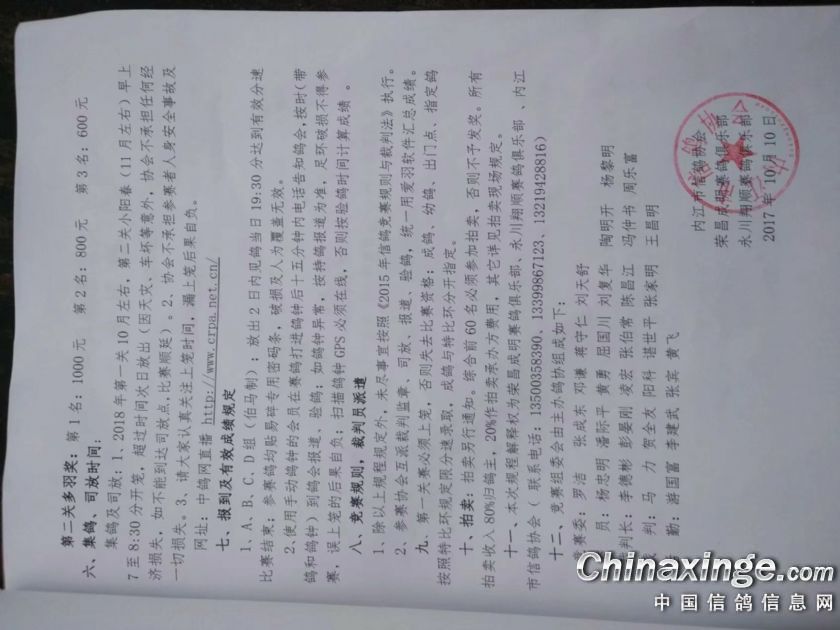 第二关多羽奖：第1名：1000元 第2名：800元 第3名：600元
六、集鸽、司放时间：
集鸽及司放：1、2018年第一关10月左右，第二关小阳春（11月左右）早上
7至8:30分开笼，超过时间次日放出（因天灾、车坏等意外，协会不承担任何经
济损失，如不能到达司放点，比赛顺延）。2、协会不承担参赛者人身安全事故及
一切损失。3、请大家认真关注上笼时间，漏上笼后果自负。
网址：中鸽网直播 http://www.crpa.net.cn/
七、报到及有效成绩规定
1、A、B、C、D组（伯马制）：放出2日内见鸽当日19:30分达到有效分速
比赛结束；参赛鸽均贴易碎专用密码条，破损及人为覆盖无效。
2、使用手动鸽钟的会员在赛鸽打进鸽钟后十五分钟内电话告知鸽会，按时（带
鸽和鸽钟）到鸽会报道、验鸽；如鸽钟异常，按持鸽报道为准，足环破损不得参
赛，误上笼的后果自负；扫描鸽钟GPS必须在线，否则按验鸽时间计算成绩。
八、竞赛规则，裁判员派遣
1、除以上规程规定外，未尽事宜按照《2015年信鸽竞赛规则与裁判法》执行。
2、参赛协会互派裁判监章、司放、报道、验鸽，统一用爱羽软件汇总成绩。
九、第一关赛必须上笼，否则失去比赛资格；成鸽、幼鸽、出门点、指定鸽
按照特比环规定限分速录取，成鸽与特比环分开指定。
十、拍卖：拍卖另行通知。综合前60名必须参加拍卖，否则不予发奖。所有
拍卖收入80%归鸽主，20%作拍卖承办方费用，其它详见拍卖现场规定。
十一、本次规程解释权为荣昌成明赛鸽俱乐部、永川翔顺赛鸽俱乐部、内江
市信鸽协会（联系电话：13500358390、13399867123、13219428816）
十二、竞赛组委会由主办鸽协组成如下：
竞赛委：罗洁 张成东 邓谦 蒋守仁 刘天舒
员：杨忠明 潘际平 黄勇 屈国川 刘复华 陶明开 杨黎明
裁判长：李德彬 彭晏刚 凌宏 张伯常 陈昌江 冯仲书 周乐富
判：马力 贺全友 阳科 谌世平 张家明 王昌明
勤：游国富 李建武 张宾 黄飞
内江市信鸽协会
荣昌成明赛鸽俱乐部
永川翔顺赛鸽俱乐部
2017年10月10日
Chinaxinge.com
中国信鸽信息网